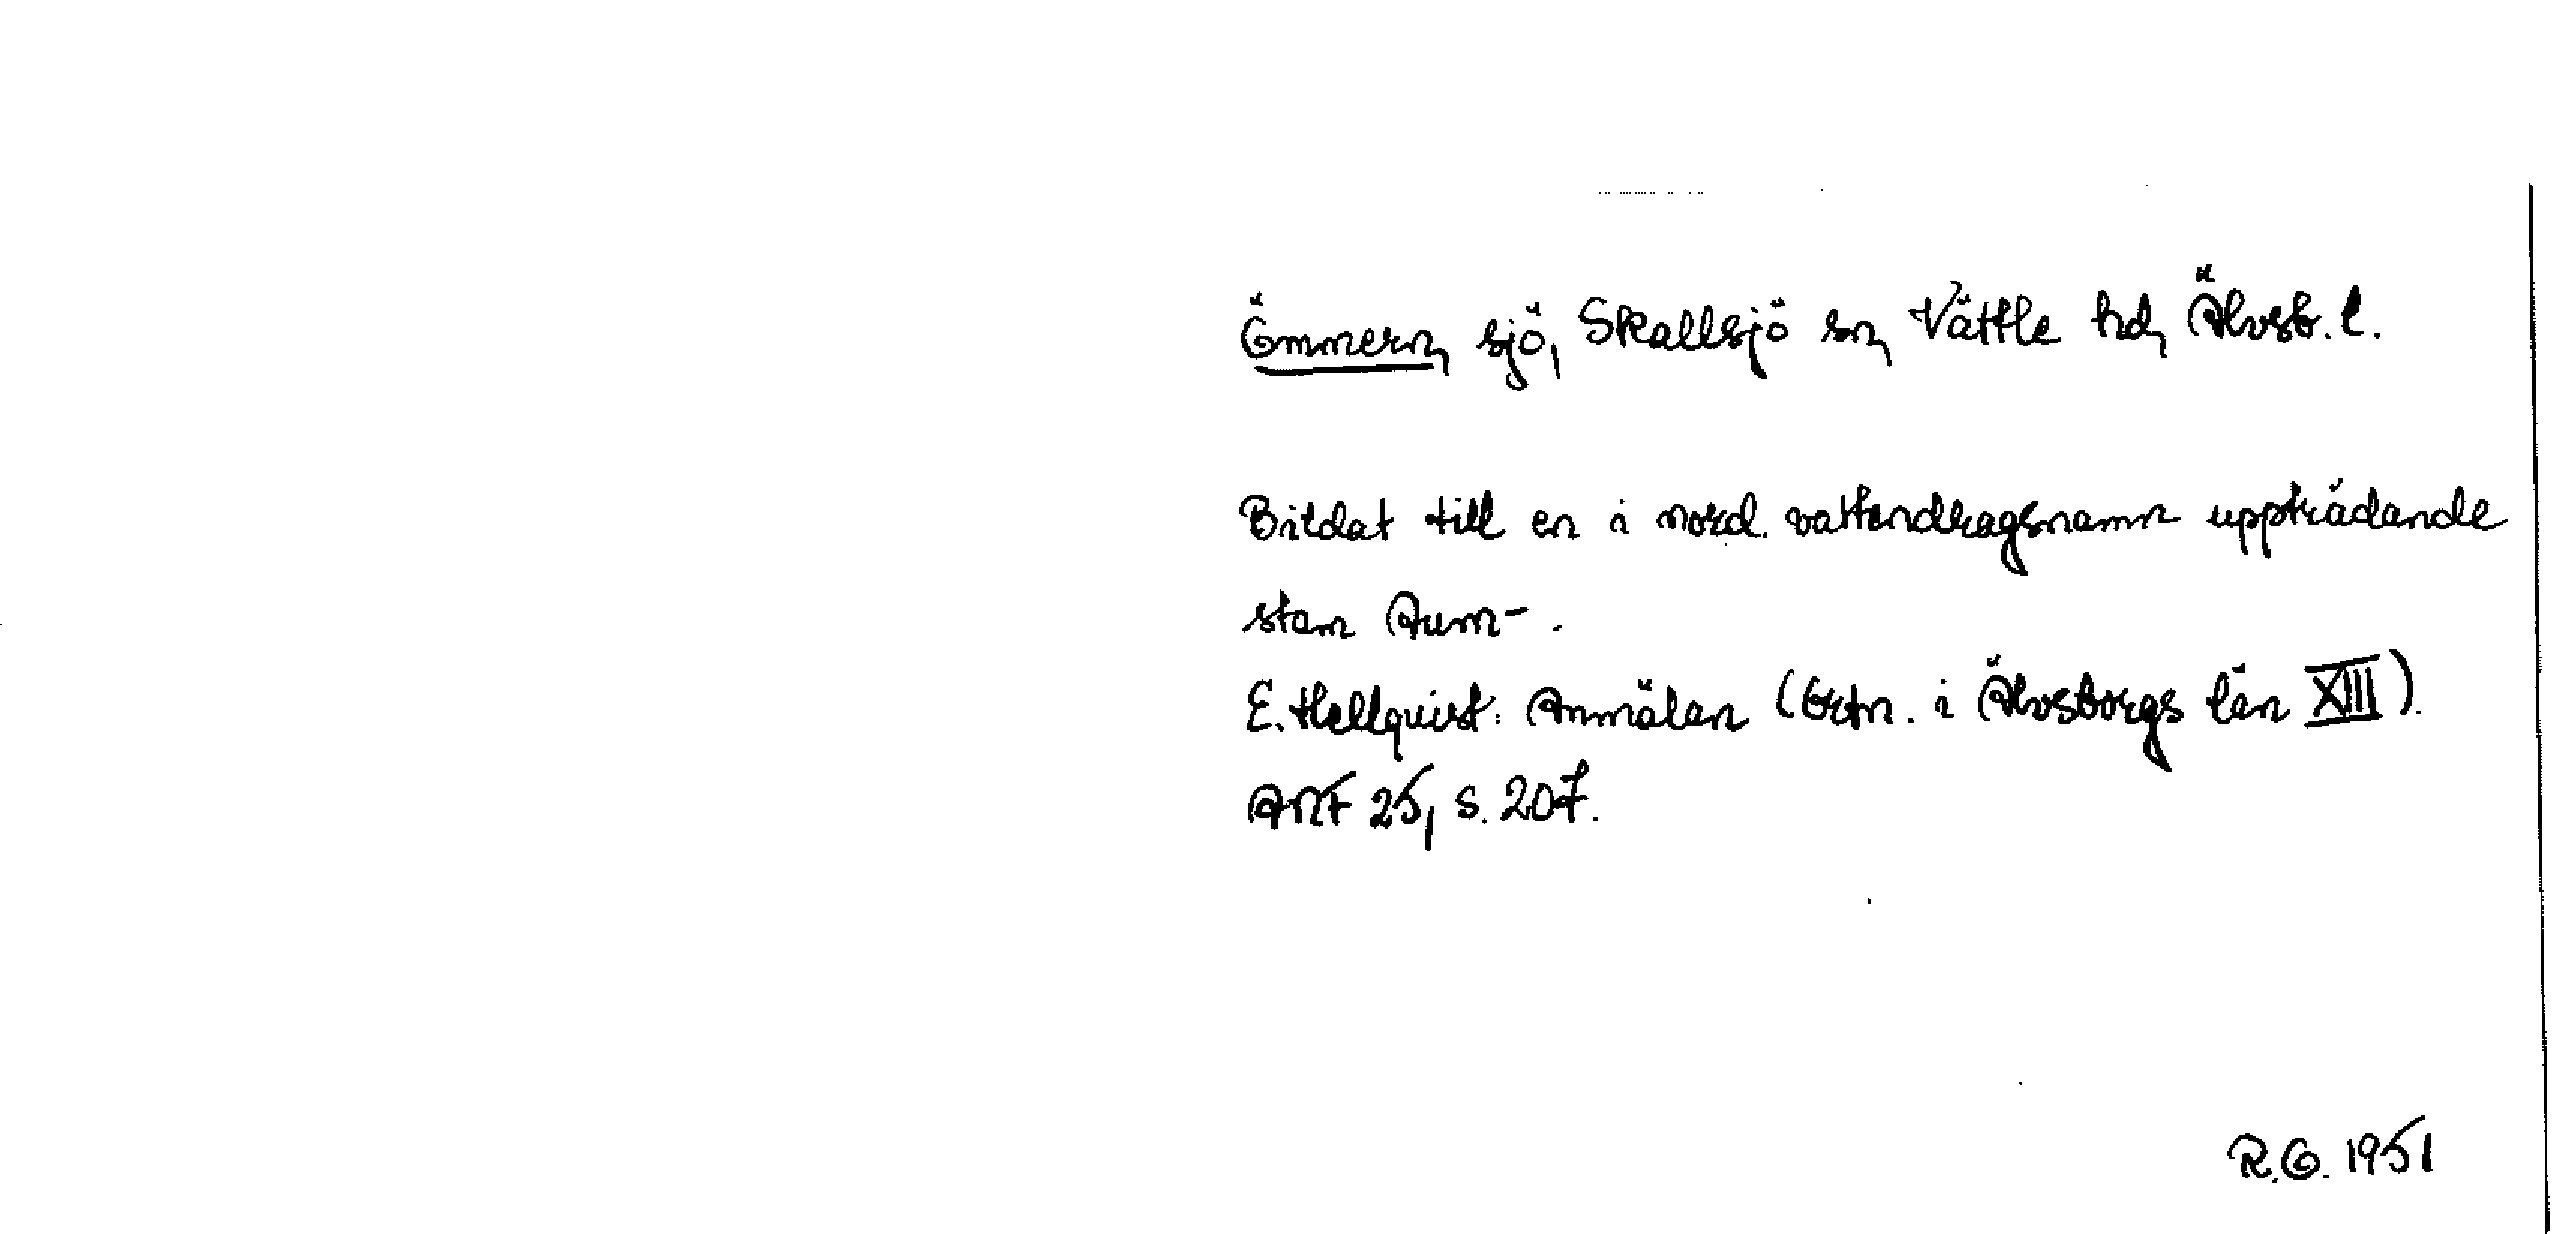 Ömmern, sjö, Skallsjö sn, Vättle hd, Älvsb. l.
Bildat till en i nord. vattendragsnamn uppträdande
stam Aum-.
E. Hellquist: Anmälan (Ortn. i Älvsborgs län XIII).
ANF 25, s. 207.
R.O. 1951